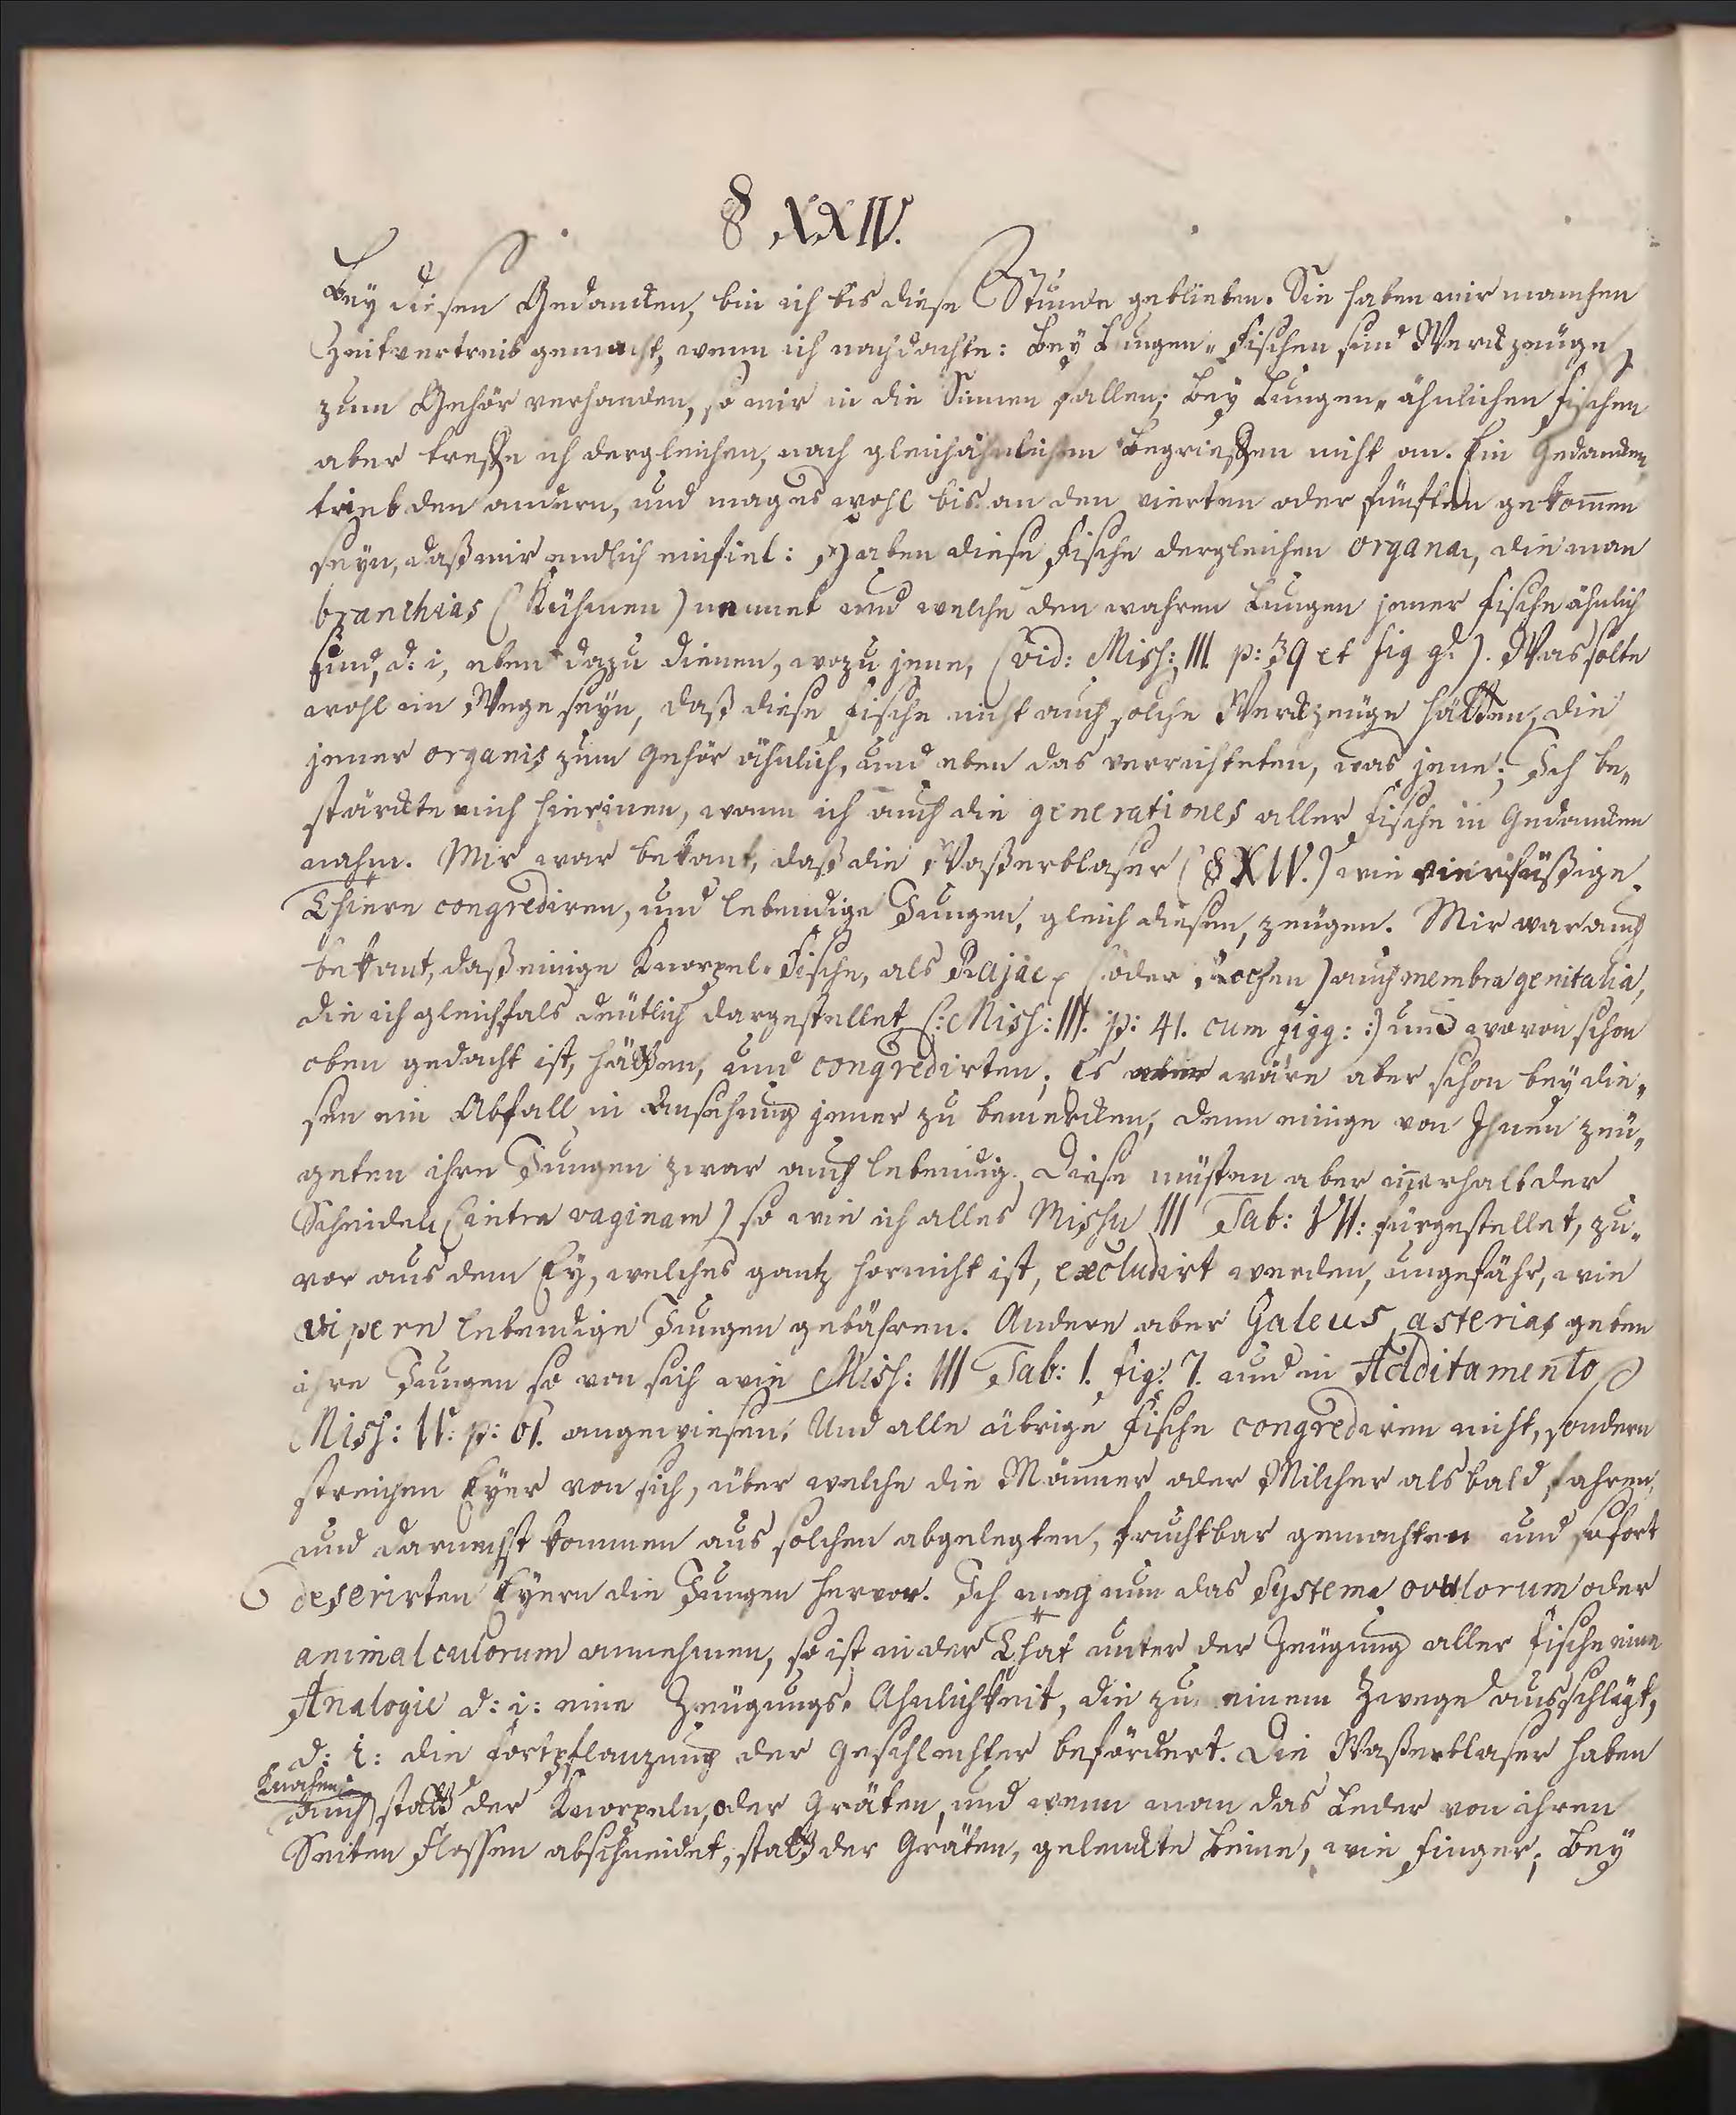 § XXIV.
Bey diesen Gedancken, bin ich bis diese Stunde geblieben. Sie haben mir manchen
Zeitvertreib gemacht, wenn ich nachdachte: Bey Lungen-Fischen sind Werckzeüge
zum Gehör verhanden, so mir in die Sinnen fallen; Bey Lungen-ähnlichen Fischen
aber treffe ich dergleichen, nach gleichähnlichen Begrieffen nicht an. Ein Gedancken
trieb den andern, und mag es wohl bis an den vierten oder fünften gekom̄en
seyn, daß mir endlich einfiel: Haben diese Fische dergleichen organa, die man
branchias (Kühmen) nennet und welche den wahren Lungen jener Fische ähnlich
sind, d. i, eben dazu dienen, wozu jene, (vid: Misc: III. p: 39 et fig g.). Was solte
wohl im Wege seyn, daß diese Fische nicht auch solche Werckzeüge hätten, die
jener organis zum Gehör ähnlich, und eben das verrichteten, was jene; Ich be-
stärckte mich hierinnen, wann ich auch die generationes aller Fische in Gedancken
nahm. Mir war bekant, daß die Waßerblaser (§ XIV.) wie vierfüßige
Thiere congrediren, und lebendige Jungen, gleich diesen, zeügen. Mir war auch
bekant, daß einige Knorpel-Fische, als Rajae, (oder Rochen) auch membra genitalia,
die ich gleichfals deütlich dargestellet (: Misc: III. p: 41. cum figg: :) und wovon schon
oben gedacht ist, hätten, und congredirten; Es wäre aber schon bey die-
sen ein Abfall in Ansehung jener zu bemercken, denn einige von Ihnen zeü-
geten ihre Jungen zwar auch lebendig. Diese müsten aber innerhalb der
Scheiden (intra vaginam) so wie ich alles Miscn III Tab: VII: fürgestellet, zu-
vor aus dem Ey, welches gantz hornicht ist, excludirt werden, ungefähr, wie
vipern lebendige Jungen gebähren. Andere aber Galeus asterias geben
ihre Jungen so von sich wie Misc: III Tab: I. fig: 7. und in Additamento
Misc: IV: p: 61. angewiesen; Und alle übrige Fische congrediren nicht, sondern
streichen Eyer von sich, über welche die Männer oder Milcher alsbald fahren,
und darnechst kommen aus solchen abgelegten, fruchtbar gemachten und sofort
deserirten Eyern die Jungen hervor. Ich mag nun das Systema ovulorum oder
animalculorum annehmen, so ist in der That unter der Zeügung aller Fische eine
Analogie d: i: eine Zeügungs-Ähnlichkeit, die zu einem Zwege ausschlägt,
d: i: die Fortpflanzung der Geschlechter befördert. Die Waßerblaser haben
Knochen
auch statt der Knorpeln, oder Gräten, und wenn man das Leder von ihren
Seiten Flossen abschneidet, statt der Gräten, gelenckte Beine, wie Finger; Bey